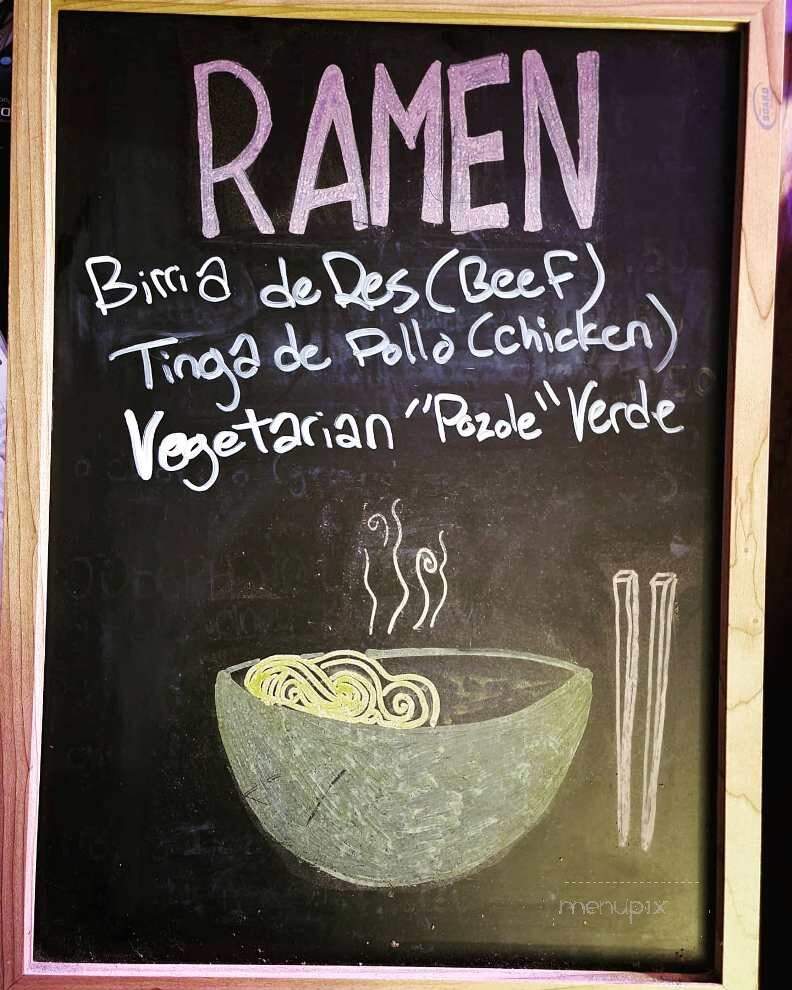 RAMEN
Birria de Res (Beef)
Tinga de Pollo (Chicken)
Vegetarian "Pozole" Verde
menupix